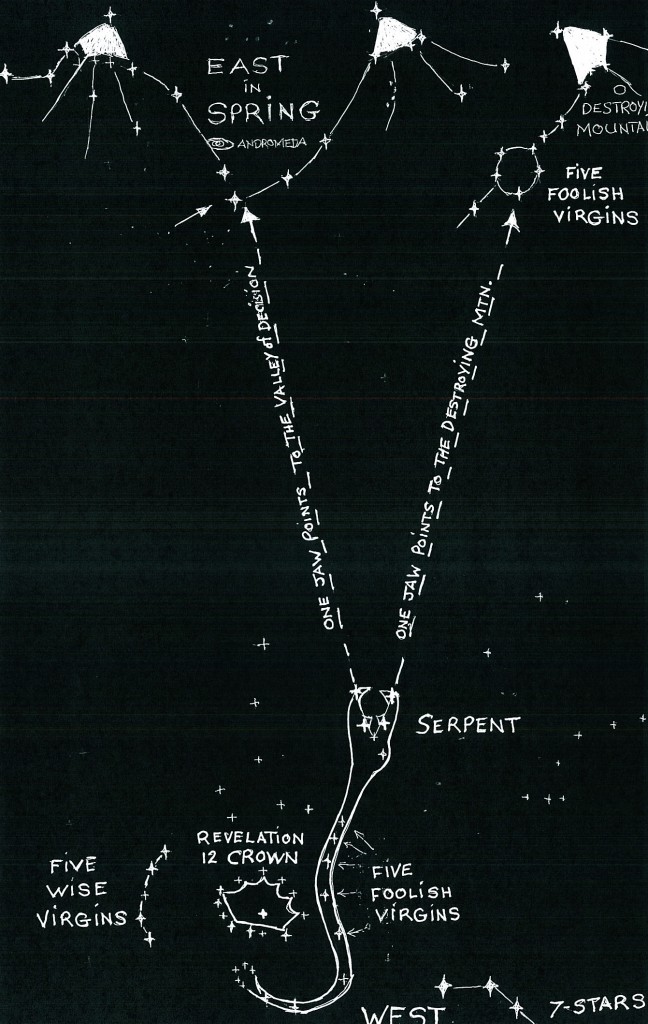 EAST
IN
SPRING
ANDROMEDA
DESTROYI
MOUNTAI
FIVE
FOOLISH
VIRGINS
ONE JAW POINTS TO THE VALLEY of DECISION
ONE JAW POINTS TO THE DESTROYING MTN.
SERPENT
REVELATION
12 CROWN
FIVE
WISE
VIRGINS
FIVE
FOOLISH
VIRGINS
WEST
7-STARS